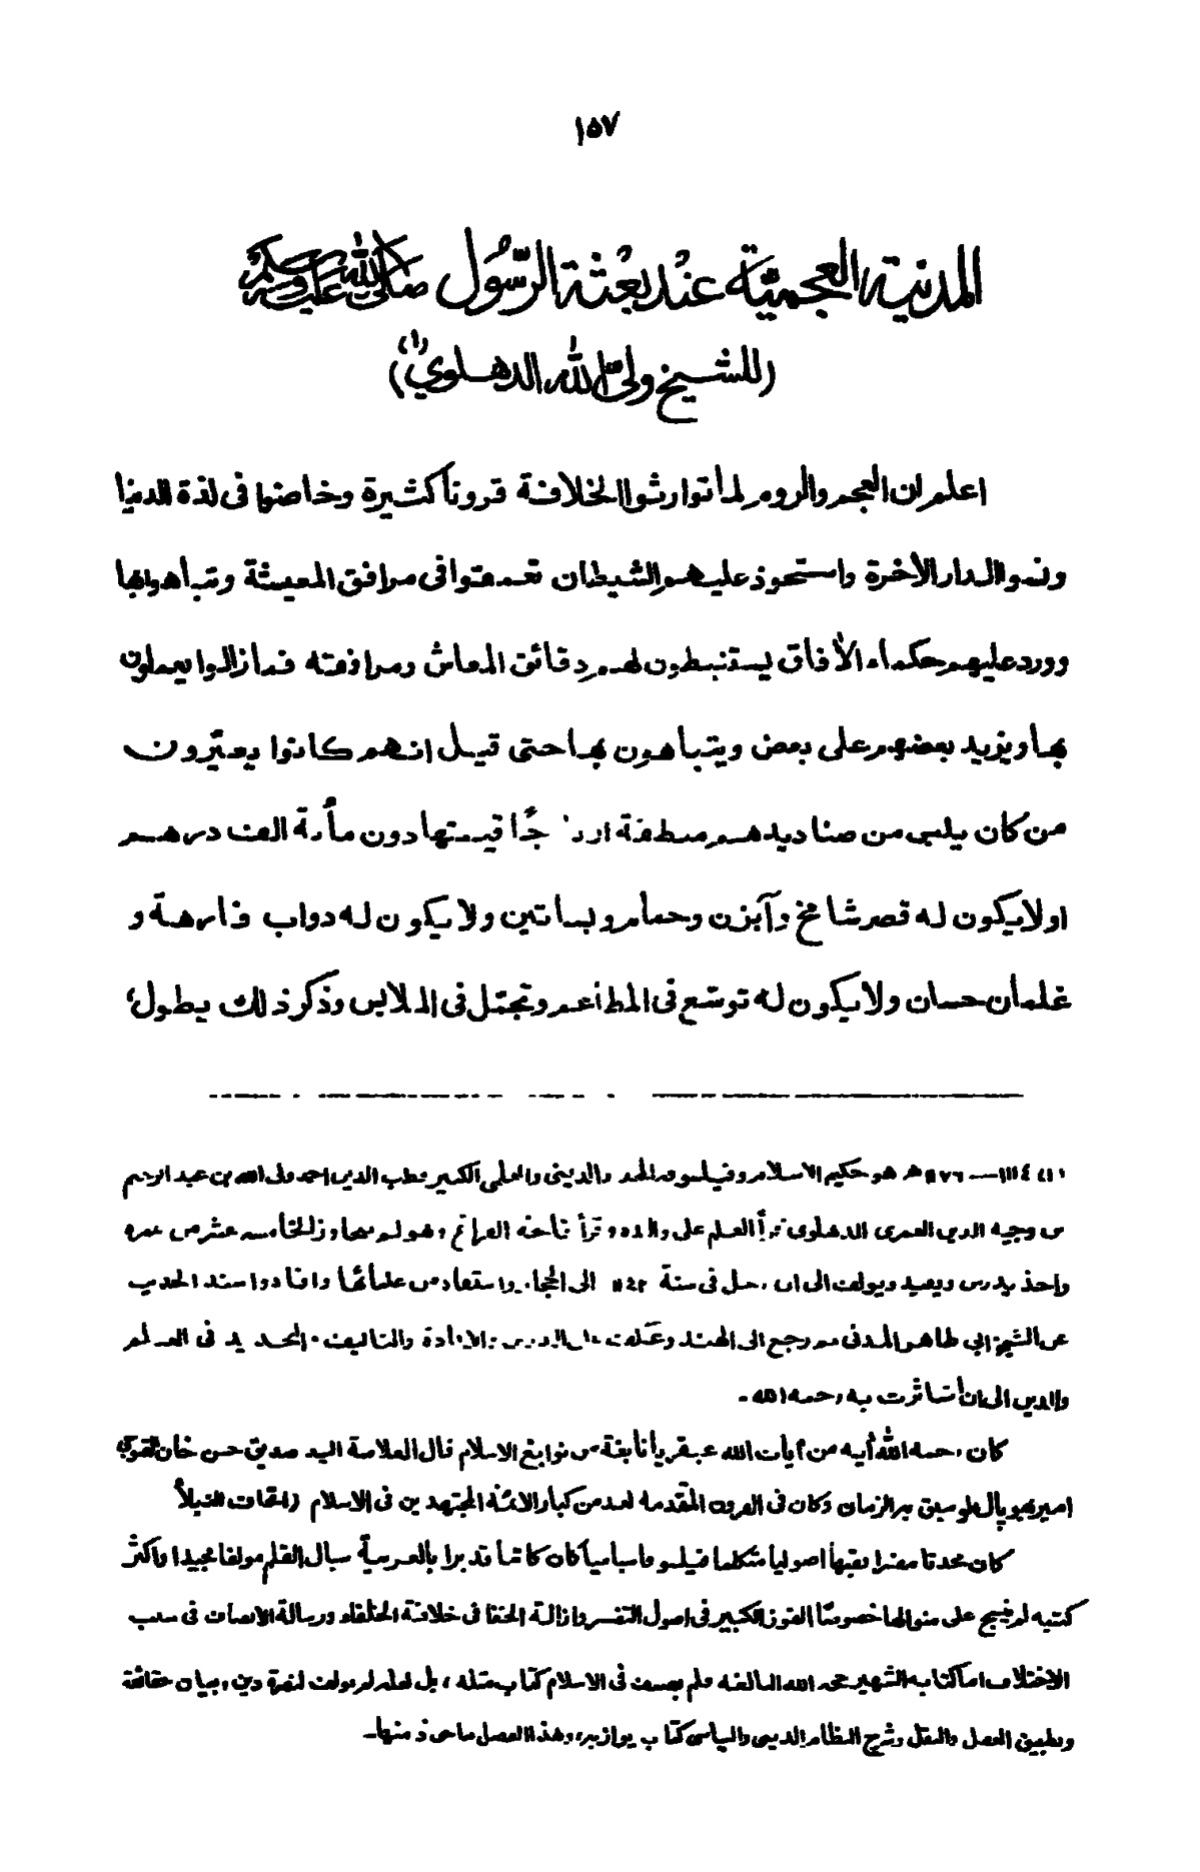 ١٥٧
المدنية العجمية عند بعثة الرّسُول صلى الله عليه وسلم
(للشيخ ولي الله الدهلوي (١))
اعلم ان العجم والروم لما توارثوا الخلافة قرونا كثيرة وخاضوا فى لذة الدنيا
ونسوا الدار الأخرة واستحوذ عليهم الشيطان تعمقوا فى مرافق المعيشة وتباهوا بها
وورد عليهم حكماء الأفاق يستنبطون لهم دقائق المعاش ومرافقته فما زالوا يعملون
بها ويزيد بعضهم على بعض ويتباهون بها حتى قيل انهم كانوا يعيّرون
من كان يلبس من صناديدهم منطقة او تاجًا قيمتها دون مأة الف درهم
او لا يكون له قصر شامخ وآبزن وحمام وبساتين ولا يكون له دواب فارهة و
غلمان حسان ولا يكون له توسّع فى المطاعم وتجمّل فى الملابس وذكر ذلك يطول؛
(١) ١١١٤ — ١١٧٦ ھ هو حكيم الاسلام وفيلسوفه المجدد الدينى والعلمى الكبير قطب الدين احمد ولى الله بن عبد الرحيم
بن وجيه الدين العمرى الدهلوى قرأ العلم على والده وقرأ فاتحة الفراغ وهو لم يتجاوز الخامسة عشر من عمره
واخذ يدرس ويفيد ويؤلف الى ان رحل فى سنة ١١٤٣ الى الحجاز واستفاد من علمائها وافادوا سند الحديث
عن الشيخ ابي طاهر المدنى ثم رجع الى الهند وعكف على التدريس والافادة والتاليف والتجديد فى العلم
والدين الى ان استأثرت به رحمه الله -
كان رحمه الله أية من أيات الله عبقريا نابغة من نوابغ الاسلام قال العلامة السيد صديق حسن خان القنوجى
امير بهوپال لو سبق به الزمان وكان فى القرون المتقدمة لعد من كبار الائمة المجتهدين فى الاسلام (اتحاف النبلأ
كان محدثا مفسرا فقيها اصوليا متكلما فيلسوفا سياسيا كان كاتبا قديرا بالعربية سيال القلم مولفا مجيدا واكثر
كتبه لم ينسج على منوالها خصوصًا الفوز الكبير فى اصول التفسير وازالة الخفا فى خلافة الخلفاء ورسالة الانصاف فى سبب
الاختلاف اما كتابه الشهير حجة الله البالغة فلم يصنف فى الاسلام كتاب مثله، بل لعله لم يولف لنصرة دين وبيان حقائقه
وتطبيق العقل والنقل وشرح النظام الدينى والسياسى كتاب يوازيه، وهذا الفصل ماخوذ منها-